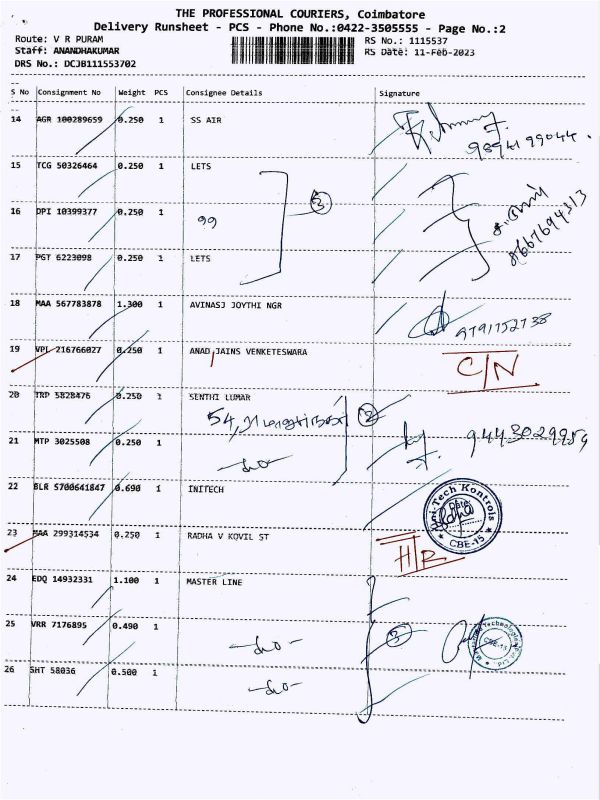 THE PROFESSIONAL COURIERS, Coimbatore
Delivery Runsheet - PCS - Phone No.:0422-3505555 - Page No.:2
Route: V R PURAM
RS No.: 1115537
Staff: ANANDHAKUMAR
RS Date: 11-Feb-2023
DRS No.: DCJB111553702
S No Consignment No Weight PCS Consignee Details Signature
14 AGR 100289659 0.250 1 SS AIR
9894199044.
15 TCG 50326464 0.250 1 LETS
3
16 DPI 10399377 0.250 1 99
8667694313
17 PGT 6223098 0.250 1 LETS
18 MAA 567783878 1.300 1 AVINASJ JOYTHI NGR
9791752738
19 VPL 216766027 0.250 1 ANAD JAINS VENKETESWARA C/N
20 TRP 5828476 0.250 1 SENTHI LUMAR
54, 2
21 MTP 3025508 0.250 1 9443029989
-do-
22 BLR 5700641847 0.690 1 INITECH
Init-Tech Kontrols
CBE-15
23 MAA 299314534 0.250 1 RADHA V KOVIL ST H/R
24 EDQ 14932331 1.100 1 MASTER LINE
25 VRR 7176895 0.490 1 -do- 3
CBE-15
26 SHT 58036 0.500 1 -do-